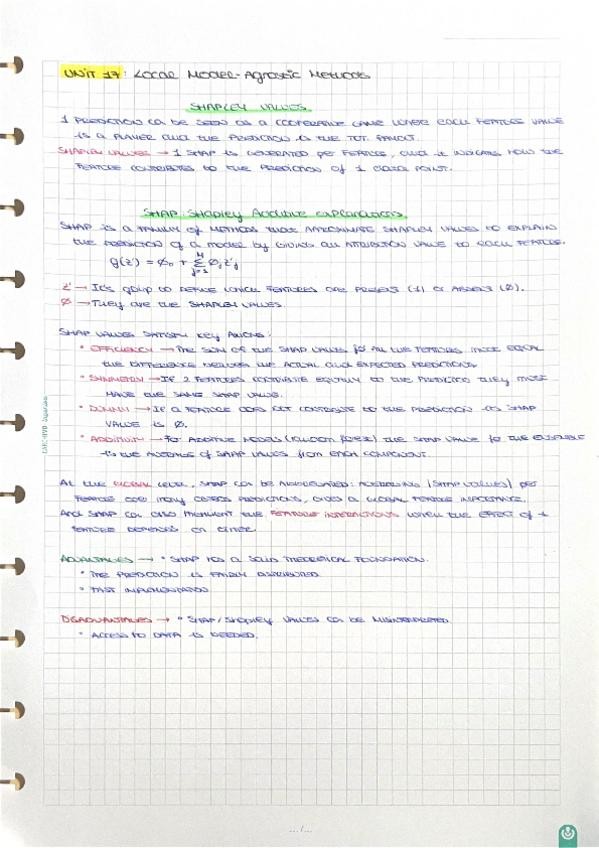 UNIT 17: Local Model-Agnostic Methods
SHAPLEY VALUES
1 PREDICTION CAN BE SEEN AS A COOPERATIVE GAME WHERE EACH FEATURE VALUE
IS A PLAYER AND THE PREDICTION IS THE TOT. PAYOUT.
SHAPLEY VALUES → 1 SHAP IS GENERATED PER FEATURE, AND IT INDICATES HOW THE
FEATURE CONTRIBUTES TO THE PREDICTION OF 1 DATA POINT.
SHAP: Shapley Additive explanations
SHAP IS A FAMILY OF METHODS THAT APPROXIMATE SHAPLEY VALUES TO EXPLAIN
THE PREDICTION OF A MODEL BY GIVING AN ATTRIBUTION VALUE TO EACH FEATURE.
g(z') = Ø₀ + Σ Øⱼz'ⱼ
M
j=1
z' → It's going to DEFINE WHICH FEATURES ARE PRESENT (1) OR ABSENT (Ø).
Ø → They are the SHAPLEY VALUES.
SHAP VALUES SATISFY Key AXIOMS:
• EFFICIENCY → THE SUM OF THE SHAP VALUES for ALL THE FEATURES MUST EQUAL
THE DIFFERENCE BETWEEN THE ACTUAL AND EXPECTED PREDICTIONS.
• SYMMETRY → If 2 FEATURES CONTRIBUTE EQUALLY TO THE PREDICTION THEY MUST
HAVE THE SAME SHAP VALUE.
• DUMMY → If A FEATURE DOES NOT CONTRIBUTE TO THE PREDICTION ITS SHAP
VALUE IS Ø.
• ADDITIVITY → For ADDITIVE MODELS (RANDOM forest) THE SHAP VALUE for THE ENSEMBLE
IS THE AVERAGE OF SHAP VALUES from EACH COMPONENT.
At the GLOBAL LEVEL, SHAP CAN BE AGGREGATED: AVERAGING |SHAP VALUES| PER
FEATURE OVER MANY PREDICTIONS, GIVES A GLOBAL FEATURE IMPORTANCE.
And SHAP CAN also THE FEATURE INTERACTIONS WHEN THE EFFECT OF 1
FEATURE DEPENDS ON OTHER.
ADVANTAGES → • SHAP HAS A SOLID THEORETICAL FOUNDATION.
• THE PREDICTION IS FAIRLY DISTRIBUTED
• FAST IMPLEMENTATION
DISADVANTAGES → • SHAP/Shapley VALUES CAN BE MISINTERPRETED.
• ACCESS TO DATA IS NEEDED.
.../...